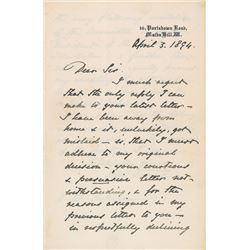 10, Portsdown Road,
Maida Hill, W.
April 3. 1894.
Dear Sir
I much regret
that the only reply I can
make to your latest letter –
I have been away from
home & it, unluckily, got
mislaid – is, that I must
adhere to my original
decision – your courteous
& persuasive letter not
withstanding, & for the
reasons assigned in my
previous letter to you –
in respectfully declining